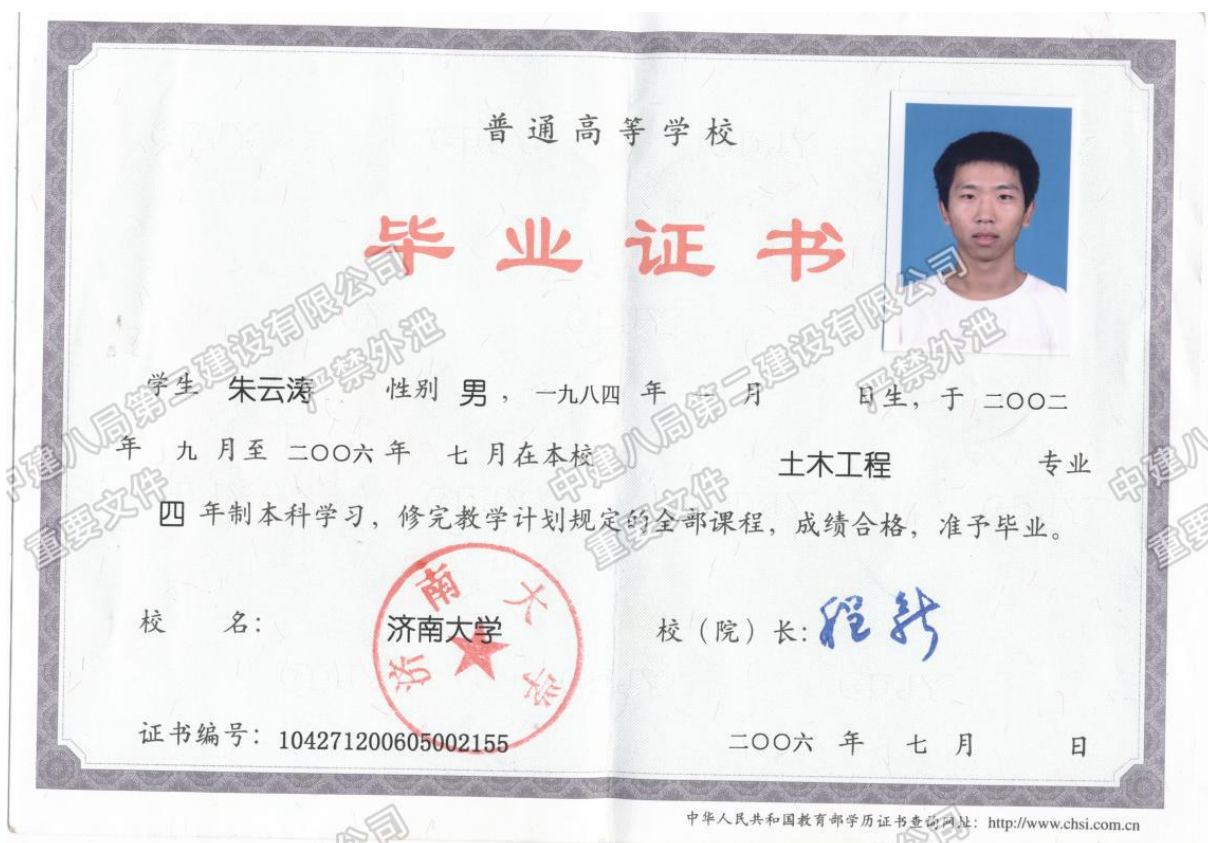 普通高等学校
毕业证书
学生 朱云涛 性别 男，一九八四 年 一 月 日生，于 二〇〇二
年 九 月至 二〇〇六 年 七 月在本校 土木工程 专业
四 年制本科学习，修完教学计划规定的全部课程，成绩合格，准予毕业。
校 名： 济南大学 校（院）长：程新
济南大学
证书编号：104271200605002155 二〇〇六 年 七 月 日
中华人民共和国教育部学历证书查询网址：http://www.chsi.com.cn
中建八局第二建设有限公司
重要文件 严禁外泄
中建八局第二建设有限公司
重要文件 严禁外泄
中建八
重要文
公司
公司